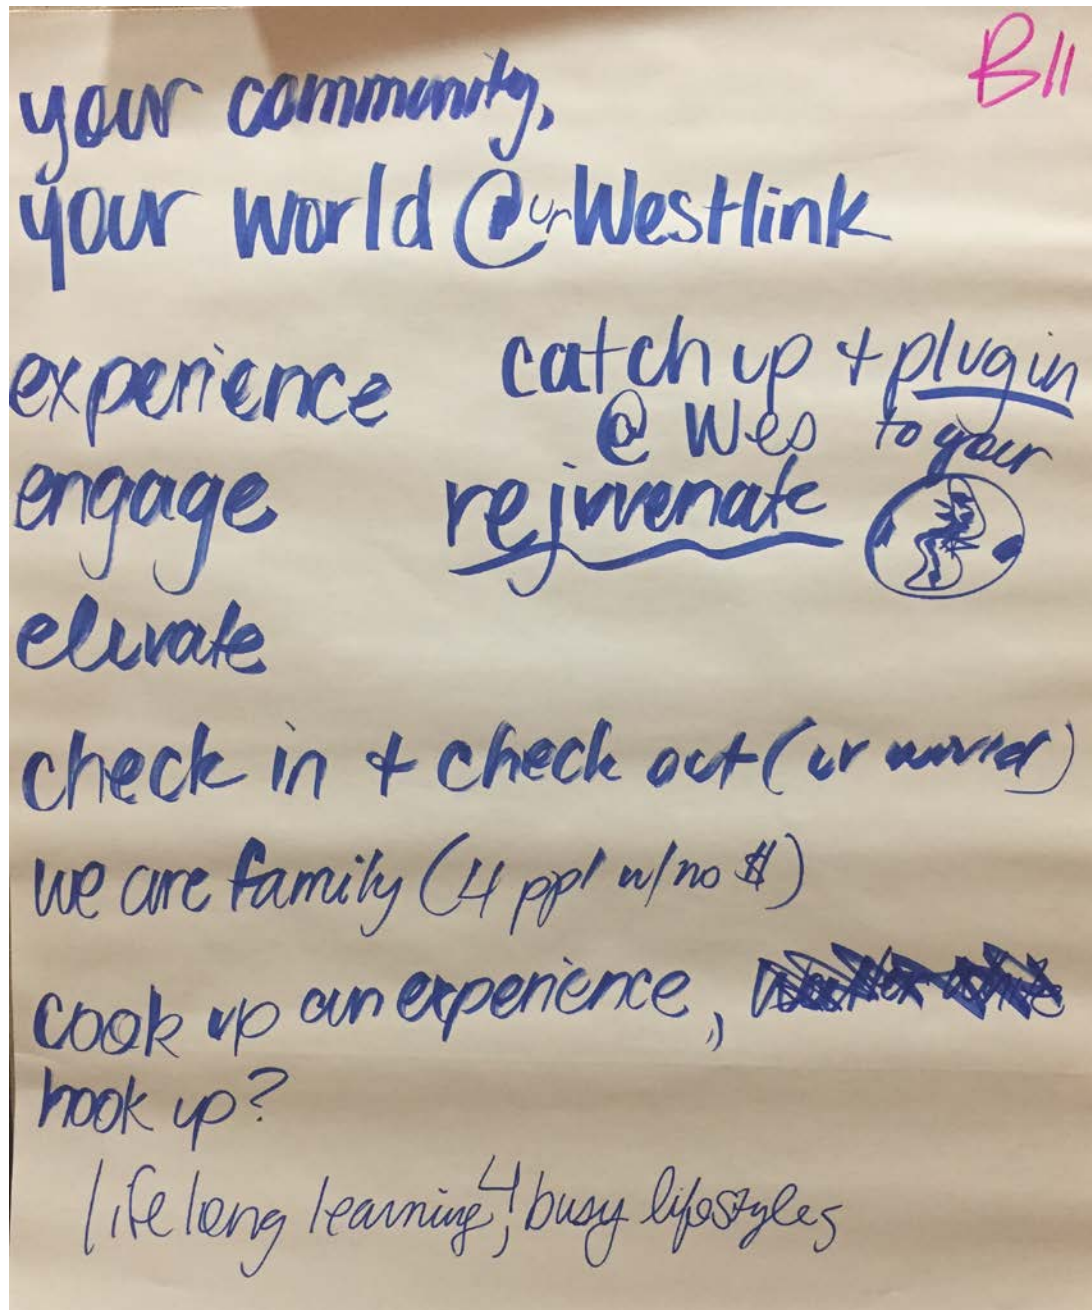 B11
your community,
your world @ ur Westlink
experience
engage
elevate
catch up + plug in
@ Wes to your
rejuvenate
check in + check out (ur world)
we are family (4 ppl w/no $)
cook up an experience,
hook up?
lifelong learning 4 busy lifestyles